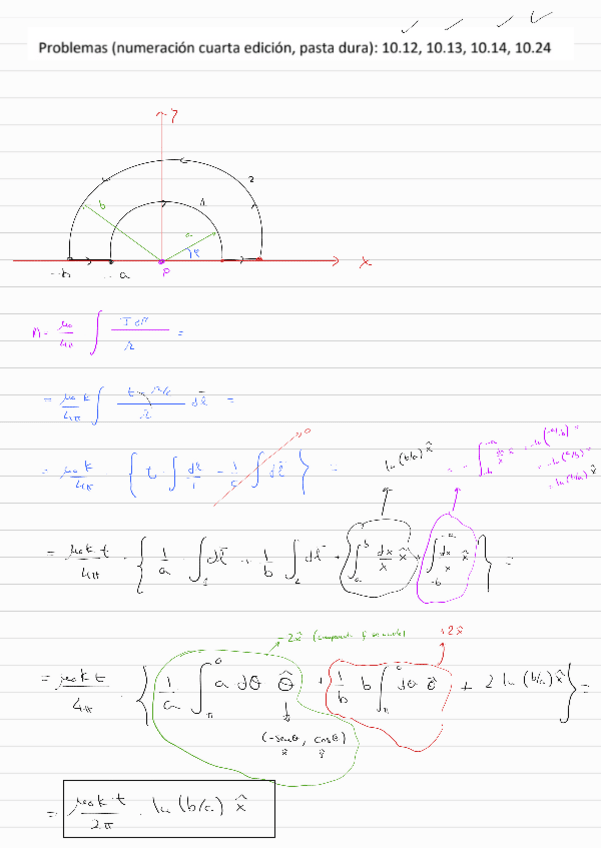 Problemas (numeración cuarta edición, pasta dura): 10.12, 10.13, 10.14, 10.24
y
2
b
1
a
φ
-b
-a
P
x
A = μ₀/4π ∫ I dl / r =
= μ₀k/4π ∫ (t - r/c)/r dl =
= μ₀k/4π { t · ∫ dl/r - 1/c ∫ dl } =
→0
ln(b/a) x̂
= μ₀kt/4π · { 1/a · ∫₁ dl + 1/b ∫₂ dl + ∫ₐᵇ dx/x x̂ + ∫₋b⁻ᵃ dx/x x̂ } =
+2x̂
= μ₀kt/4π · { 1/a ∫π⁰ a dθ θ̂ + 1/b b ∫π⁰ dθ θ̂ + 2 ln(b/a) x̂ } =
(-senθ, cosθ)
x̂ ŷ
= μ₀k·t/2π · ln(b/a) x̂